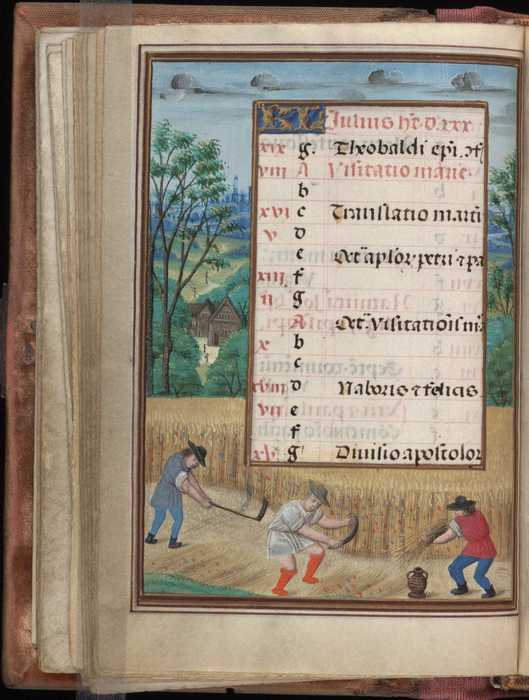 KL Iulius ht d. xxx
xix g. Theobaldi epi.
viii A Visitatio marie.
b
xvi c Translatio marti
v d
e Oct aplor. petri et pa
xiii f
ii g
A Oct. Visitatiōis m
x b
c
xviii d Naboris et felicis
vii e
f
xv g Divisio apostolor